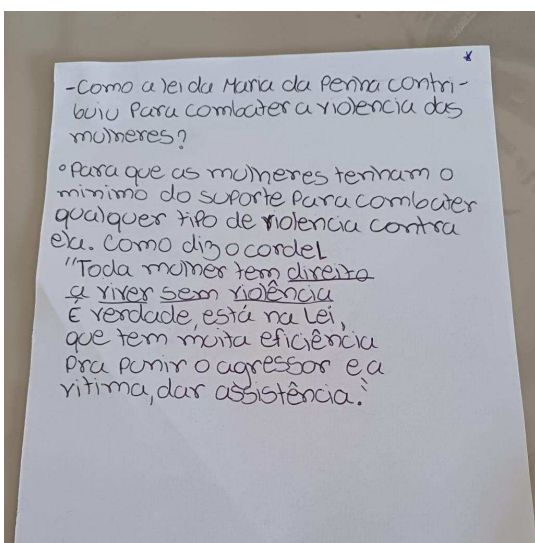 -Como a lei da Maria da Penha contri-
buiu Para combater a violencia das
mulheres?
°Para que as mulheres tenham o
minimo do suporte Para combater
qualquer tipo de violencia contra
ela. Como diz o cordel
"Toda mulher tem direito
a viver sem violência
É verdade, está na Lei,
que tem muita eficiência
Pra Punir o agressor e a
vitima, dar assistência."